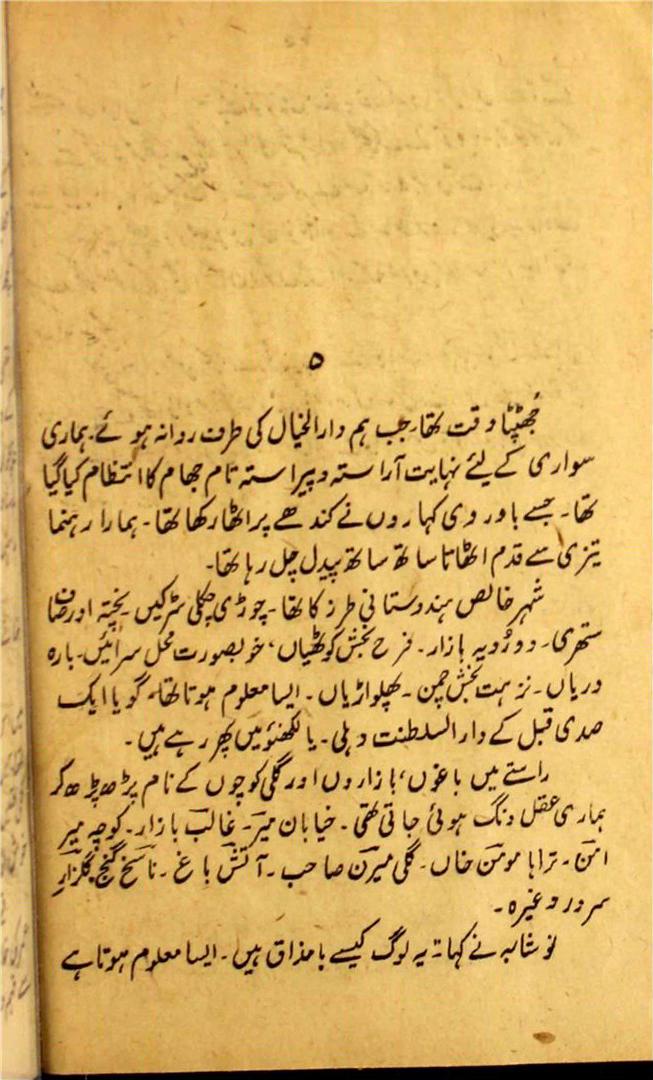 ۵
جُھٹپٹا وقت تھا۔ جب ہم دارالخیال کی طرف روانہ ہوئے۔ ہماری
سواری کے لئے نہایت آراستہ و پیراستہ تام جھام کا انتظام کیا گیا
تھا۔ جسے باوردی کہاروں نے کندھے پر اٹھا رکھا تھا۔ ہمارا رہنما
تیزی سے قدم اٹھاتا ساتھ ساتھ پیدل چل رہا تھا۔
شہر خالص ہندوستانی طرز کا تھا۔ چوڑی چکلی سڑکیں۔ پختہ اور صاف
ستھری۔ دو رُویہ بازار۔ فرح بخش کوٹھیاں، خوبصورت محل سرائیں۔ بارہ
دریاں۔ نزہت بخش چمن۔ پھلواڑیاں۔ ایسا معلوم ہوتا تھا، گویا ایک
صدی قبل کے دارالسلطنت دہلی۔ یا لکھنؤ میں پھر رہے ہیں۔
راستے میں باغوں، بازاروں اور گلی کوچوں کے نام پڑھ پڑھ کر
ہماری عقل دنگ ہوئی جاتی تھی۔ خیابان میرؔ۔ غالبؔ بازار۔ کوچہ میر
امنؔ۔ تراہا مومنؔ خاں۔ گلی میرنؔ صاحب۔ آتشؔ باغ۔ ناسخؔ گنج۔ گلزارِ
سرور وغیرہ۔
نوشابہ نے کہا: یہ لوگ کیسے بامذاق ہیں۔ ایسا معلوم ہوتا ہے